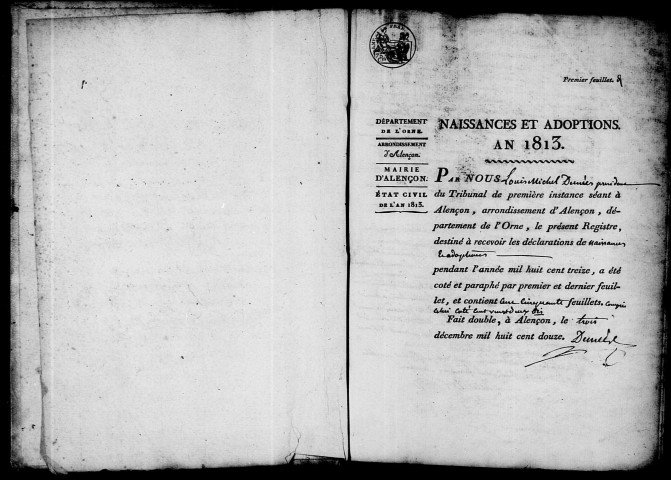 Premier feuillet.
DÉPARTEMENT
DE L'ORNE.
ARRONDISSEMENT
d'Alençon.
MAIRIE
D'ALENÇON.
ÉTAT CIVIL
DE L'AN 1813.
NAISSANCES ET ADOPTIONS.
AN 1813.
PAR NOUS Louis Michel
du Tribunal de première instance séant à
Alençon, arrondissement d'Alençon, dé-
partement de l'Orne, le présent Registre,
destiné à recevoir les déclarations de naissances
et adoptions
pendant l'année mil huit cent treize, a été
coté et paraphé par premier et dernier feuil-
let, et contient cent cinquante feuillets.
Fait double, à Alençon, le trois
décembre mil huit cent douze.